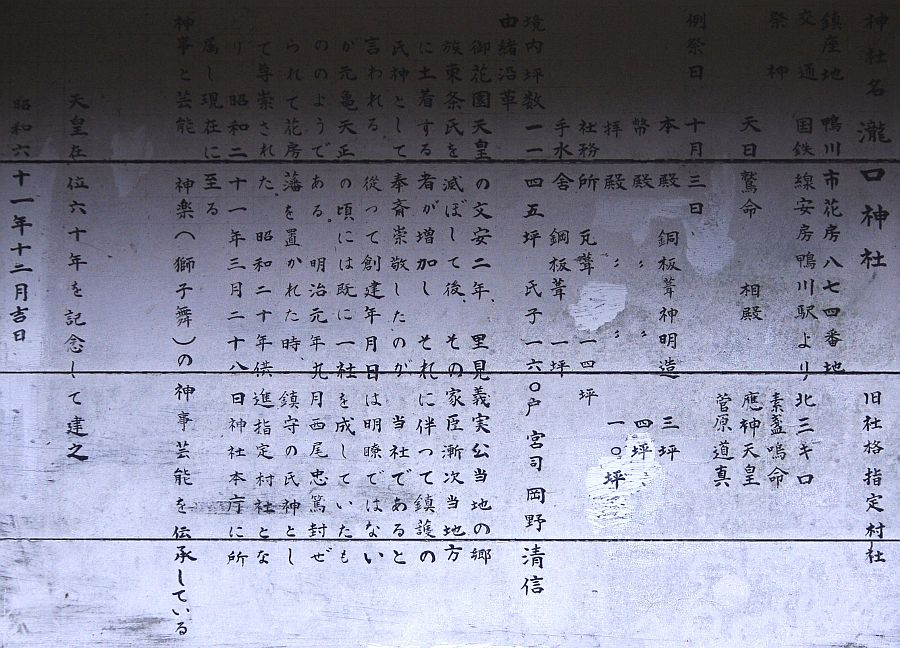 神社名 瀧口神社 旧社格指定村社
鎮座地 鴨川市花房八七四番地
交通 国鉄線安房鴨川駅より北三キロ
祭神 天日鷲命 相殿 素盞嗚命
應神天皇
菅原道真
例祭日 十月三日
本殿 銅板葺神明造 三坪
幣殿 〃 〃 四坪
拝殿 〃 〃 一〇坪
社務所 瓦葺 一四坪
手水舎 鋼板葺 一坪
境内坪数 一一四五坪 氏子一六〇戸 宮司 岡野清信
由緒沿革
御花園天皇の文安二年、里見義実公当地の郷
族東条氏を滅ぼして後、その家臣漸次当地方
に土着する者が増加し それに伴つて鎮護の
氏神として奉斎崇敬したのが 当社であると
言われる 従って創建年月日は明瞭ではない
が元亀天正の頃には既に一社を成していたも
ののようである。明治元年九月西尾忠篤封ぜ
られて花房藩を置かれた時、鎮守の氏神とし
て尊崇された。昭和二十年供進指定村社とな
り 昭和二十一年三月二十八日神社本庁に所
属し現在に至る
神事と芸能 神楽(獅子舞)の神事芸能を伝承している
天皇在位六十年を記念して建之
昭和六十一年十二月吉日